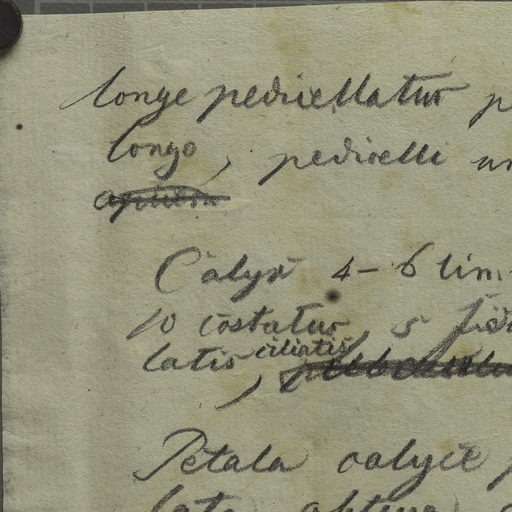 longe pedicellatus p
longo, pedicelli un
Calyx 4-6 lin
10 costatus, 5 fid
latis ciliatis
Petala calyce
lata